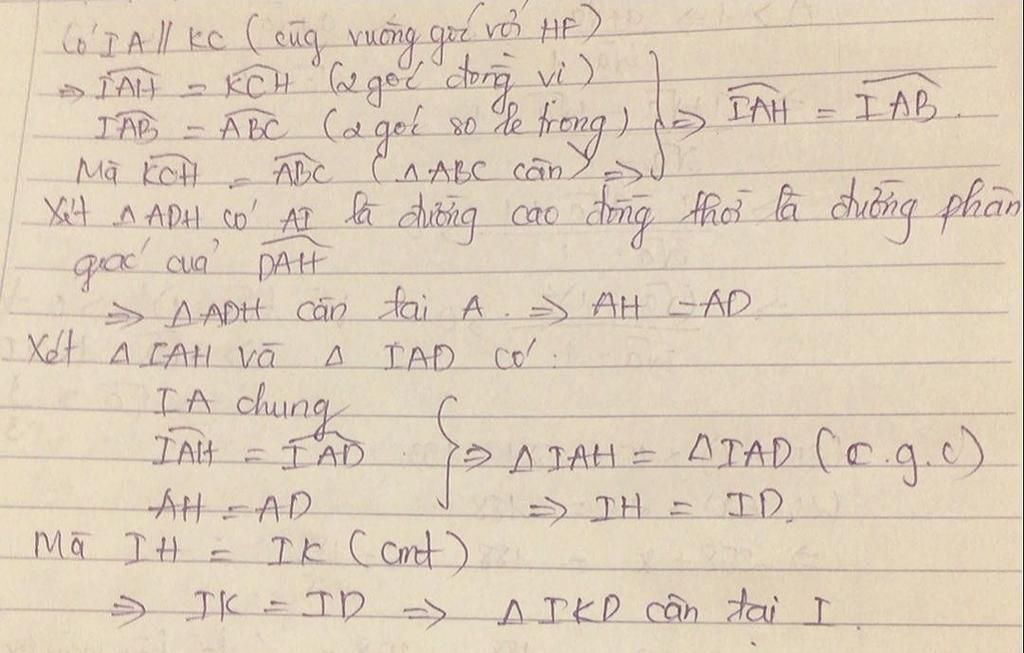 Có IA // KC (cùng vuông góc với HF)
⇒ $\widehat{IAH}$ = $\widehat{KCH}$ (2 góc đồng vị)
$\widehat{IAB}$ = $\widehat{ABC}$ (2 góc so le trong) } ⇒ $\widehat{IAH}$ = $\widehat{IAB}$.
Mà $\widehat{KCH}$ = $\widehat{ABC}$ (△ABC cân) ⇒
Xét △ADH có AI là đường cao đồng thời là đường phân
giác của $\widehat{DAH}$
⇒ △ADH cân tại A. ⇒ AH = AD
Xét △IAH và △IAD có:
IA chung
$\widehat{IAH}$ = $\widehat{IAD}$ } ⇒ △IAH = △IAD (c.g.c)
AH = AD ⇒ IH = ID.
Mà IH = IK (cmt)
⇒ IK = ID ⇒ △IKD cân tại I.